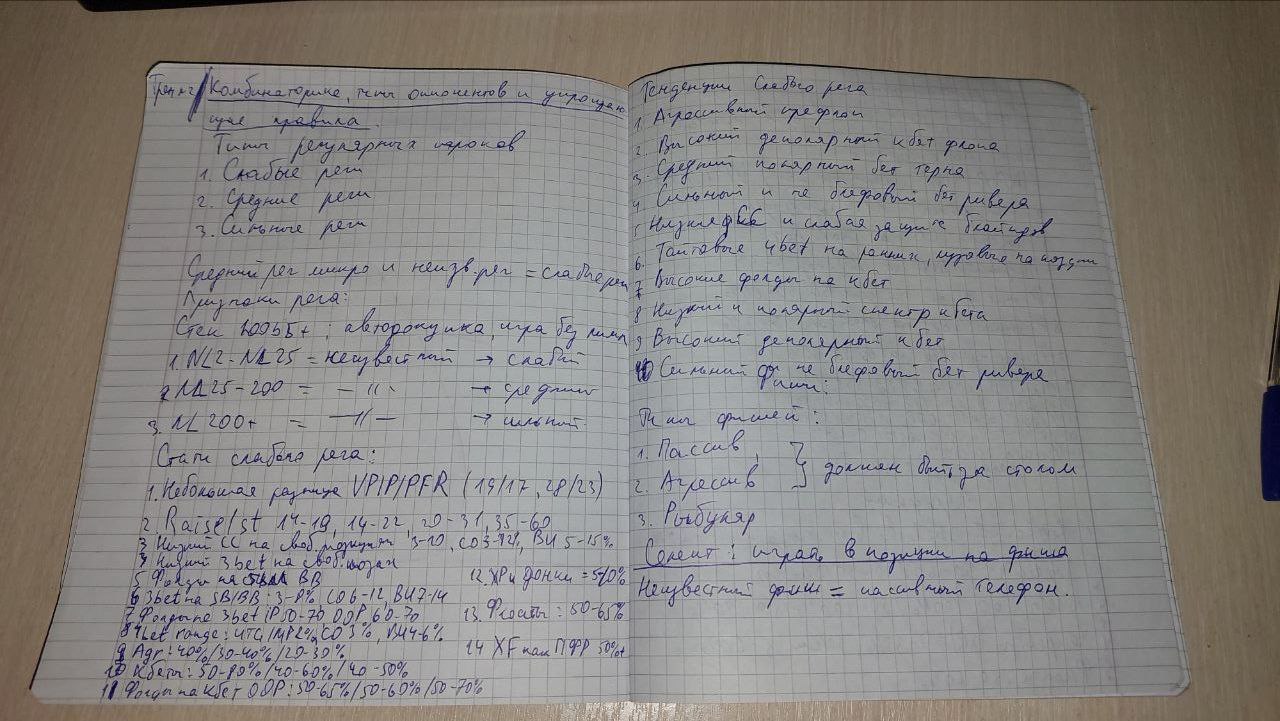 Комбинаторика, типы оппонентов и упрощаю
щие правила.
Типы регулярных игроков
1. Слабые реги
2. Средние реги
3. Сильные реги
Средний рег микро и неизв. рег = слабые реги
Признаки рега:
Стек 100ББ+; автодокупка, игра без лимп
1. NL2-NL25 = неизвестный → слабый
2 NL25-200 = -//- → средний
3. NL200+ = -//- → сильный
Статы слабого рега:
1. Небольшая разница VPIP/PFR (19/17, 28/23)
2. Raise1st 14-19, 14-22, 20-31, 35-60
3 Низкий CC на свой 3-10, CO 3-12%, BU 5-15%
4 Низкий 3bet на свой
5 Фолды на BB
6 3bet на SB/BB: 3-8% CO 6-12, BU 7-14
7 Фолды на 3bet IP 50-70, OOP 60-70
8 4bet range: UTG/MP 2%, CO 3%, BU 4-6%
9 Агр: 40%/30-40%/20-30%
10 Кбеты: 50-80%/40-60%/40-50%
11 Фолды на Кбет OOP: 50-65%/50-60%/50-70%
12. ХР и донки = 5-10%
13. Флоаты: 50-65%
14 XF как ПФР 50%+
Тенденции слабого рега
1. Агрессивный префлоп
2. Высокий деполярный кбет флопа
3. Средний полярный бет терна
4. Сильный и не блефовый бет ривера
5 Низкие и слабая защита блайндов
6. Тайтовые 4bet на ранних, на
7 Высокие фолды на кбет
8 Низкий и полярный спектр кбета
9 Высокий деполярный кбет
10 Сильный не блефовый бет ривера
Фиши:
Типы фишей:
1. Пассив,
2. Агрессив } должен быть за столом
3. Рыбуляр
Селект: играть в позиции на фиша
Неизвестный фиш = пассивный телефон.